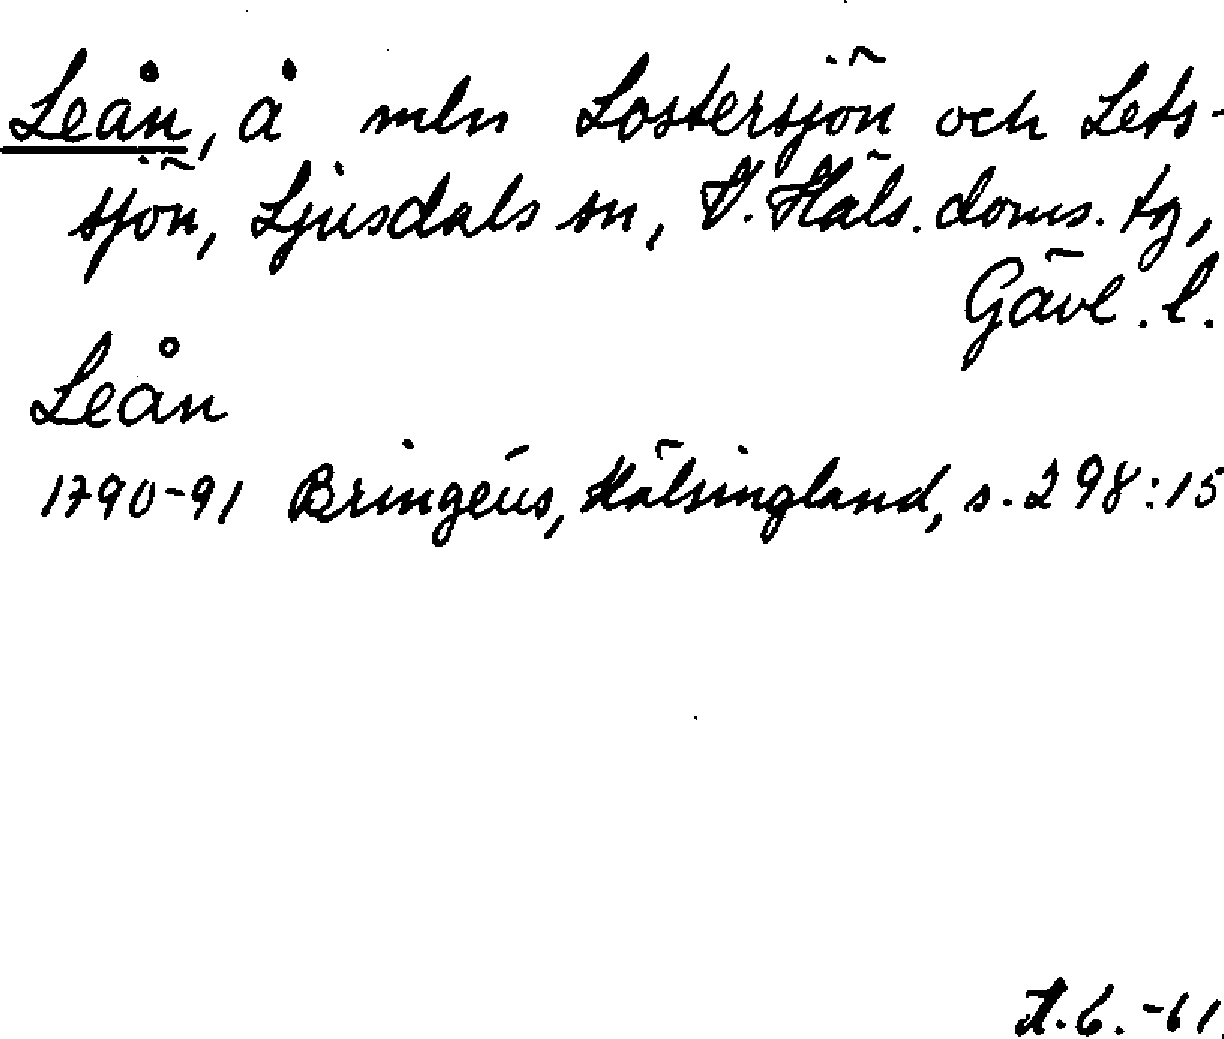 Leån, å mln Lostersjön och Lets-
sjön, Ljusdals sn, V. Häls. doms. tg,
Gävl. l.
Leån
1790-91 Bringéus, Hälsingland, s. 298:15
-61